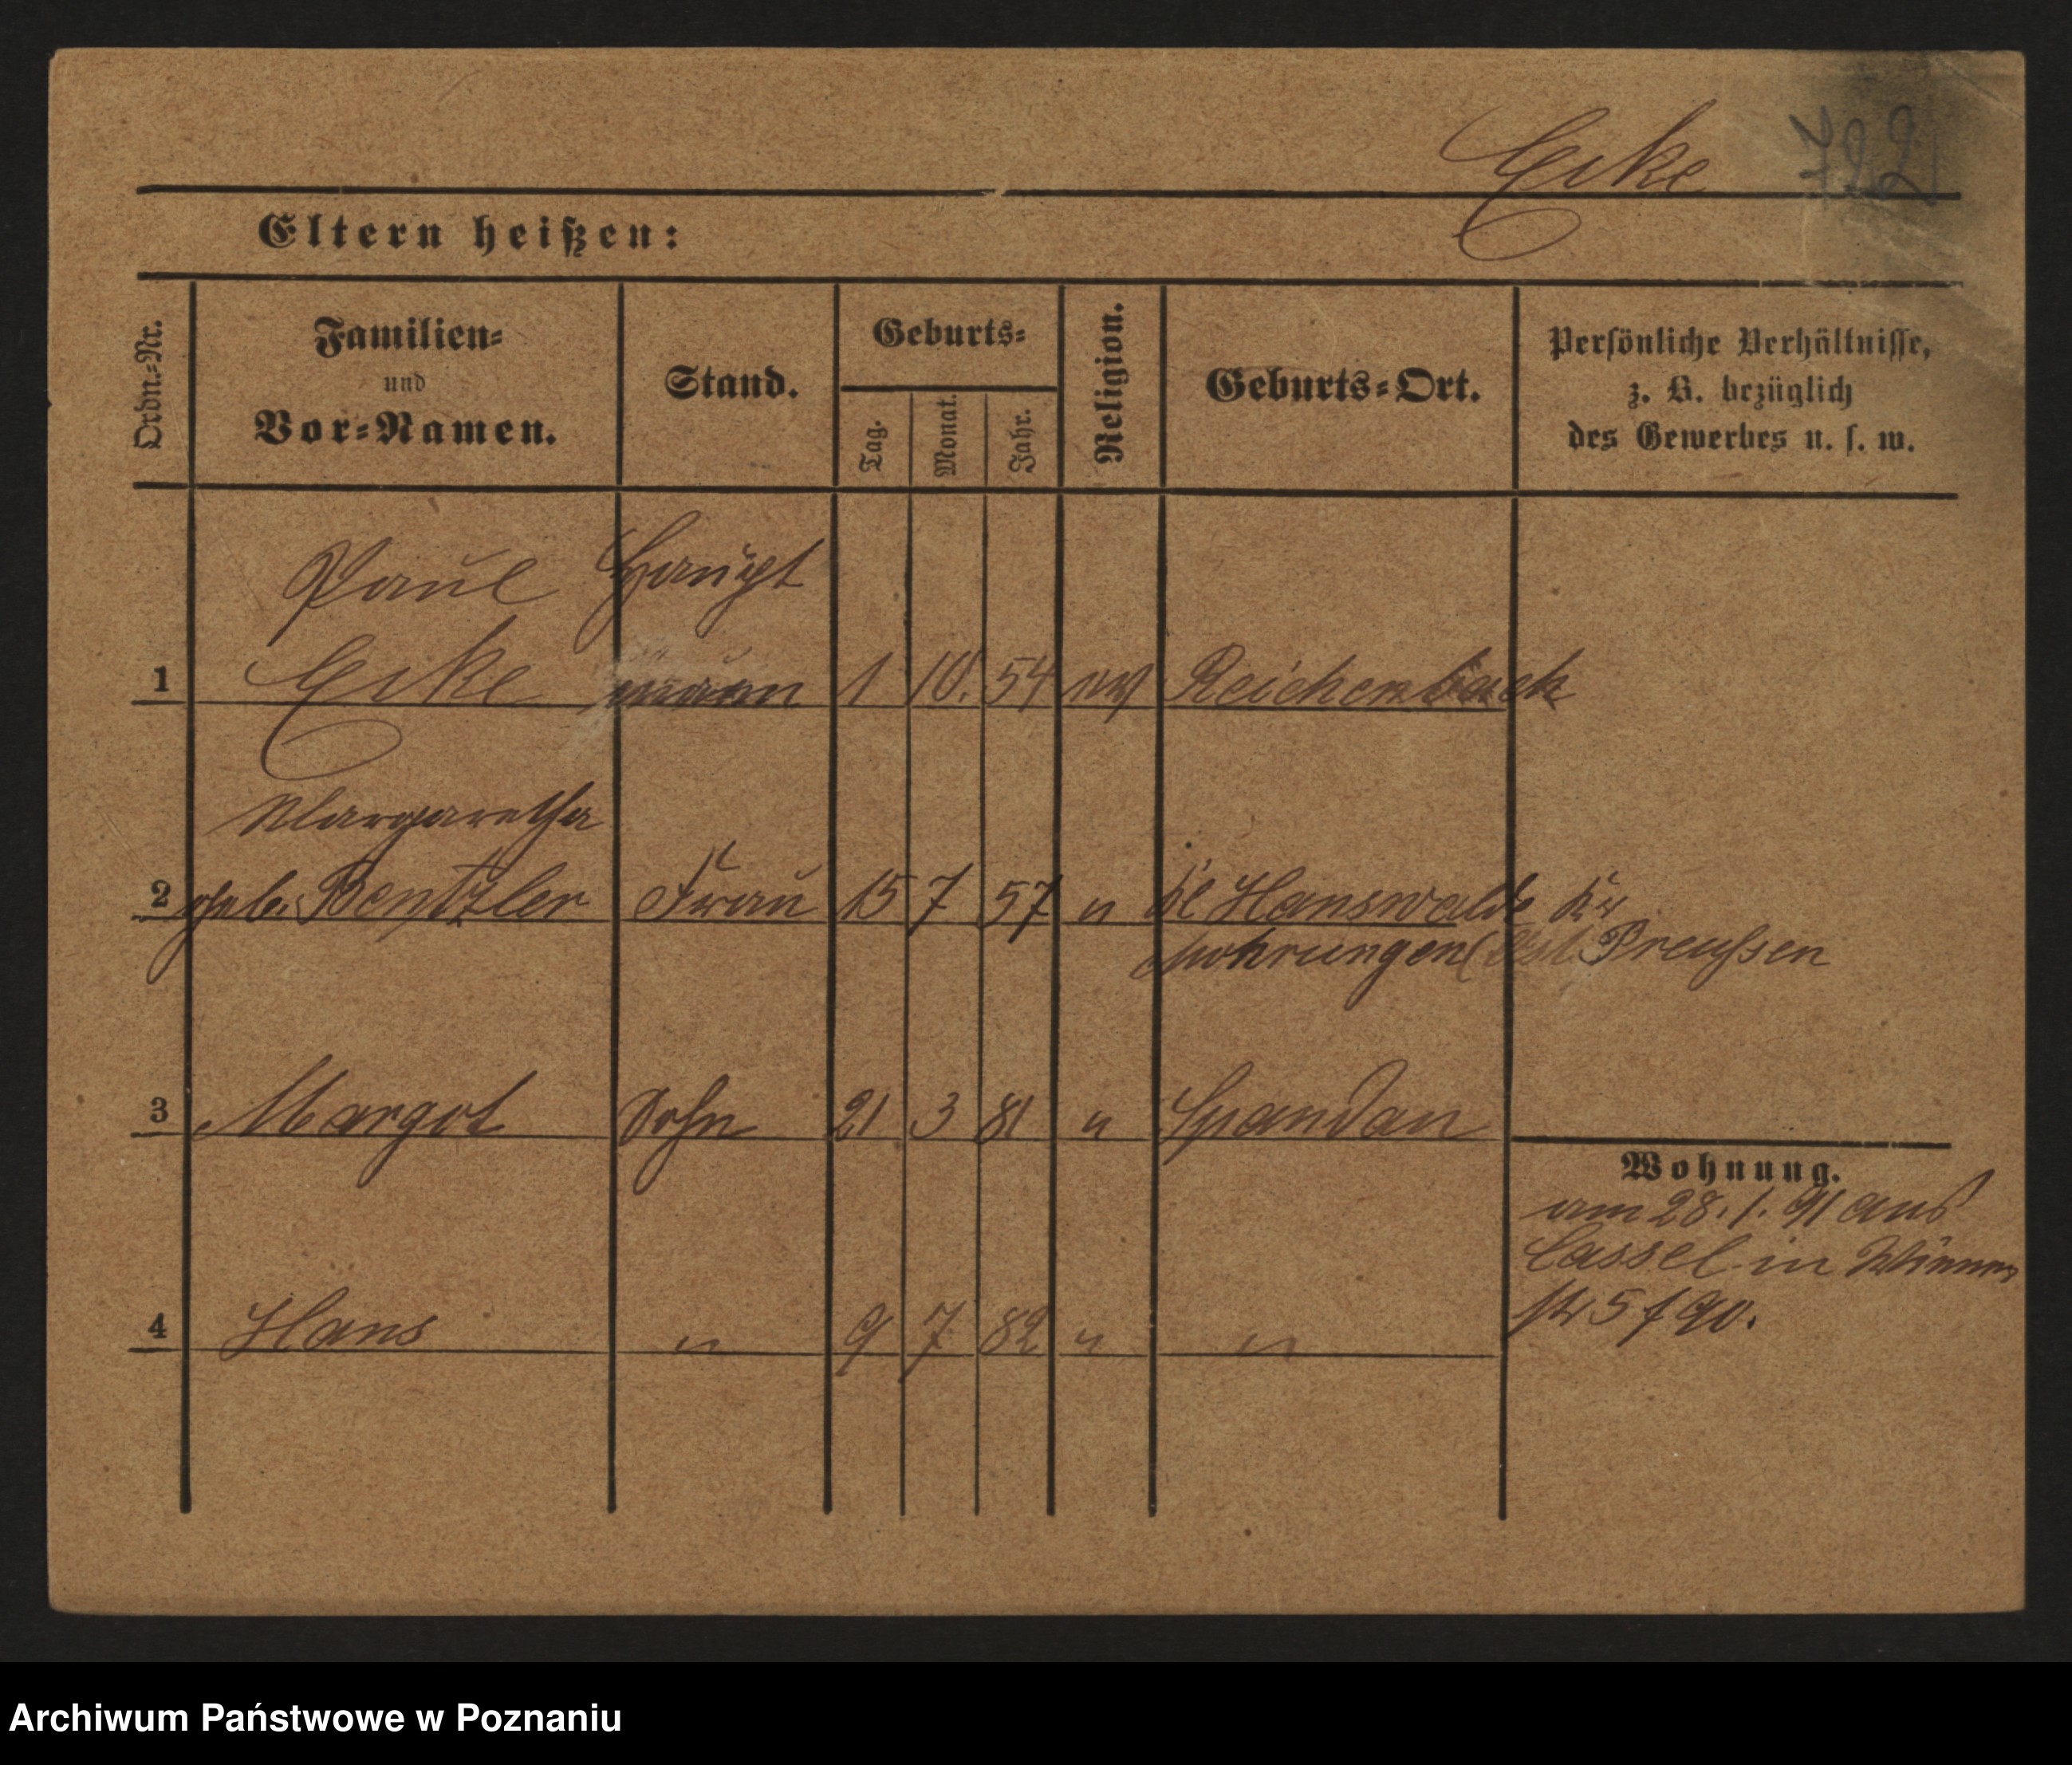 Ecke 722
Eltern heißen:
Ordn.-Nr.
Familien-
und
Vor-Namen.
Stand.
Geburts-
Tag.
Monat.
Jahr.
Religion.
Geburts-Ort.
Persönliche Verhältnisse,
z. B. bezüglich
des Gewerbes u. s. w.
Paul Haupt
1 Ecke mann 1 10. 54 ev Reichenbach
Margaretha
2 geb. Bentzler Frau 15 7 57 " Kl Hanswalde Kr
Mohrungen (Ost Preußsen
3 Margot Sohn 21 3 81 " Spandau
Wohnung.
am 28. 1. 91 aus
Cassel in
4 Hans " 9 7 82 " "
Archiwum Państwowe w Poznaniu